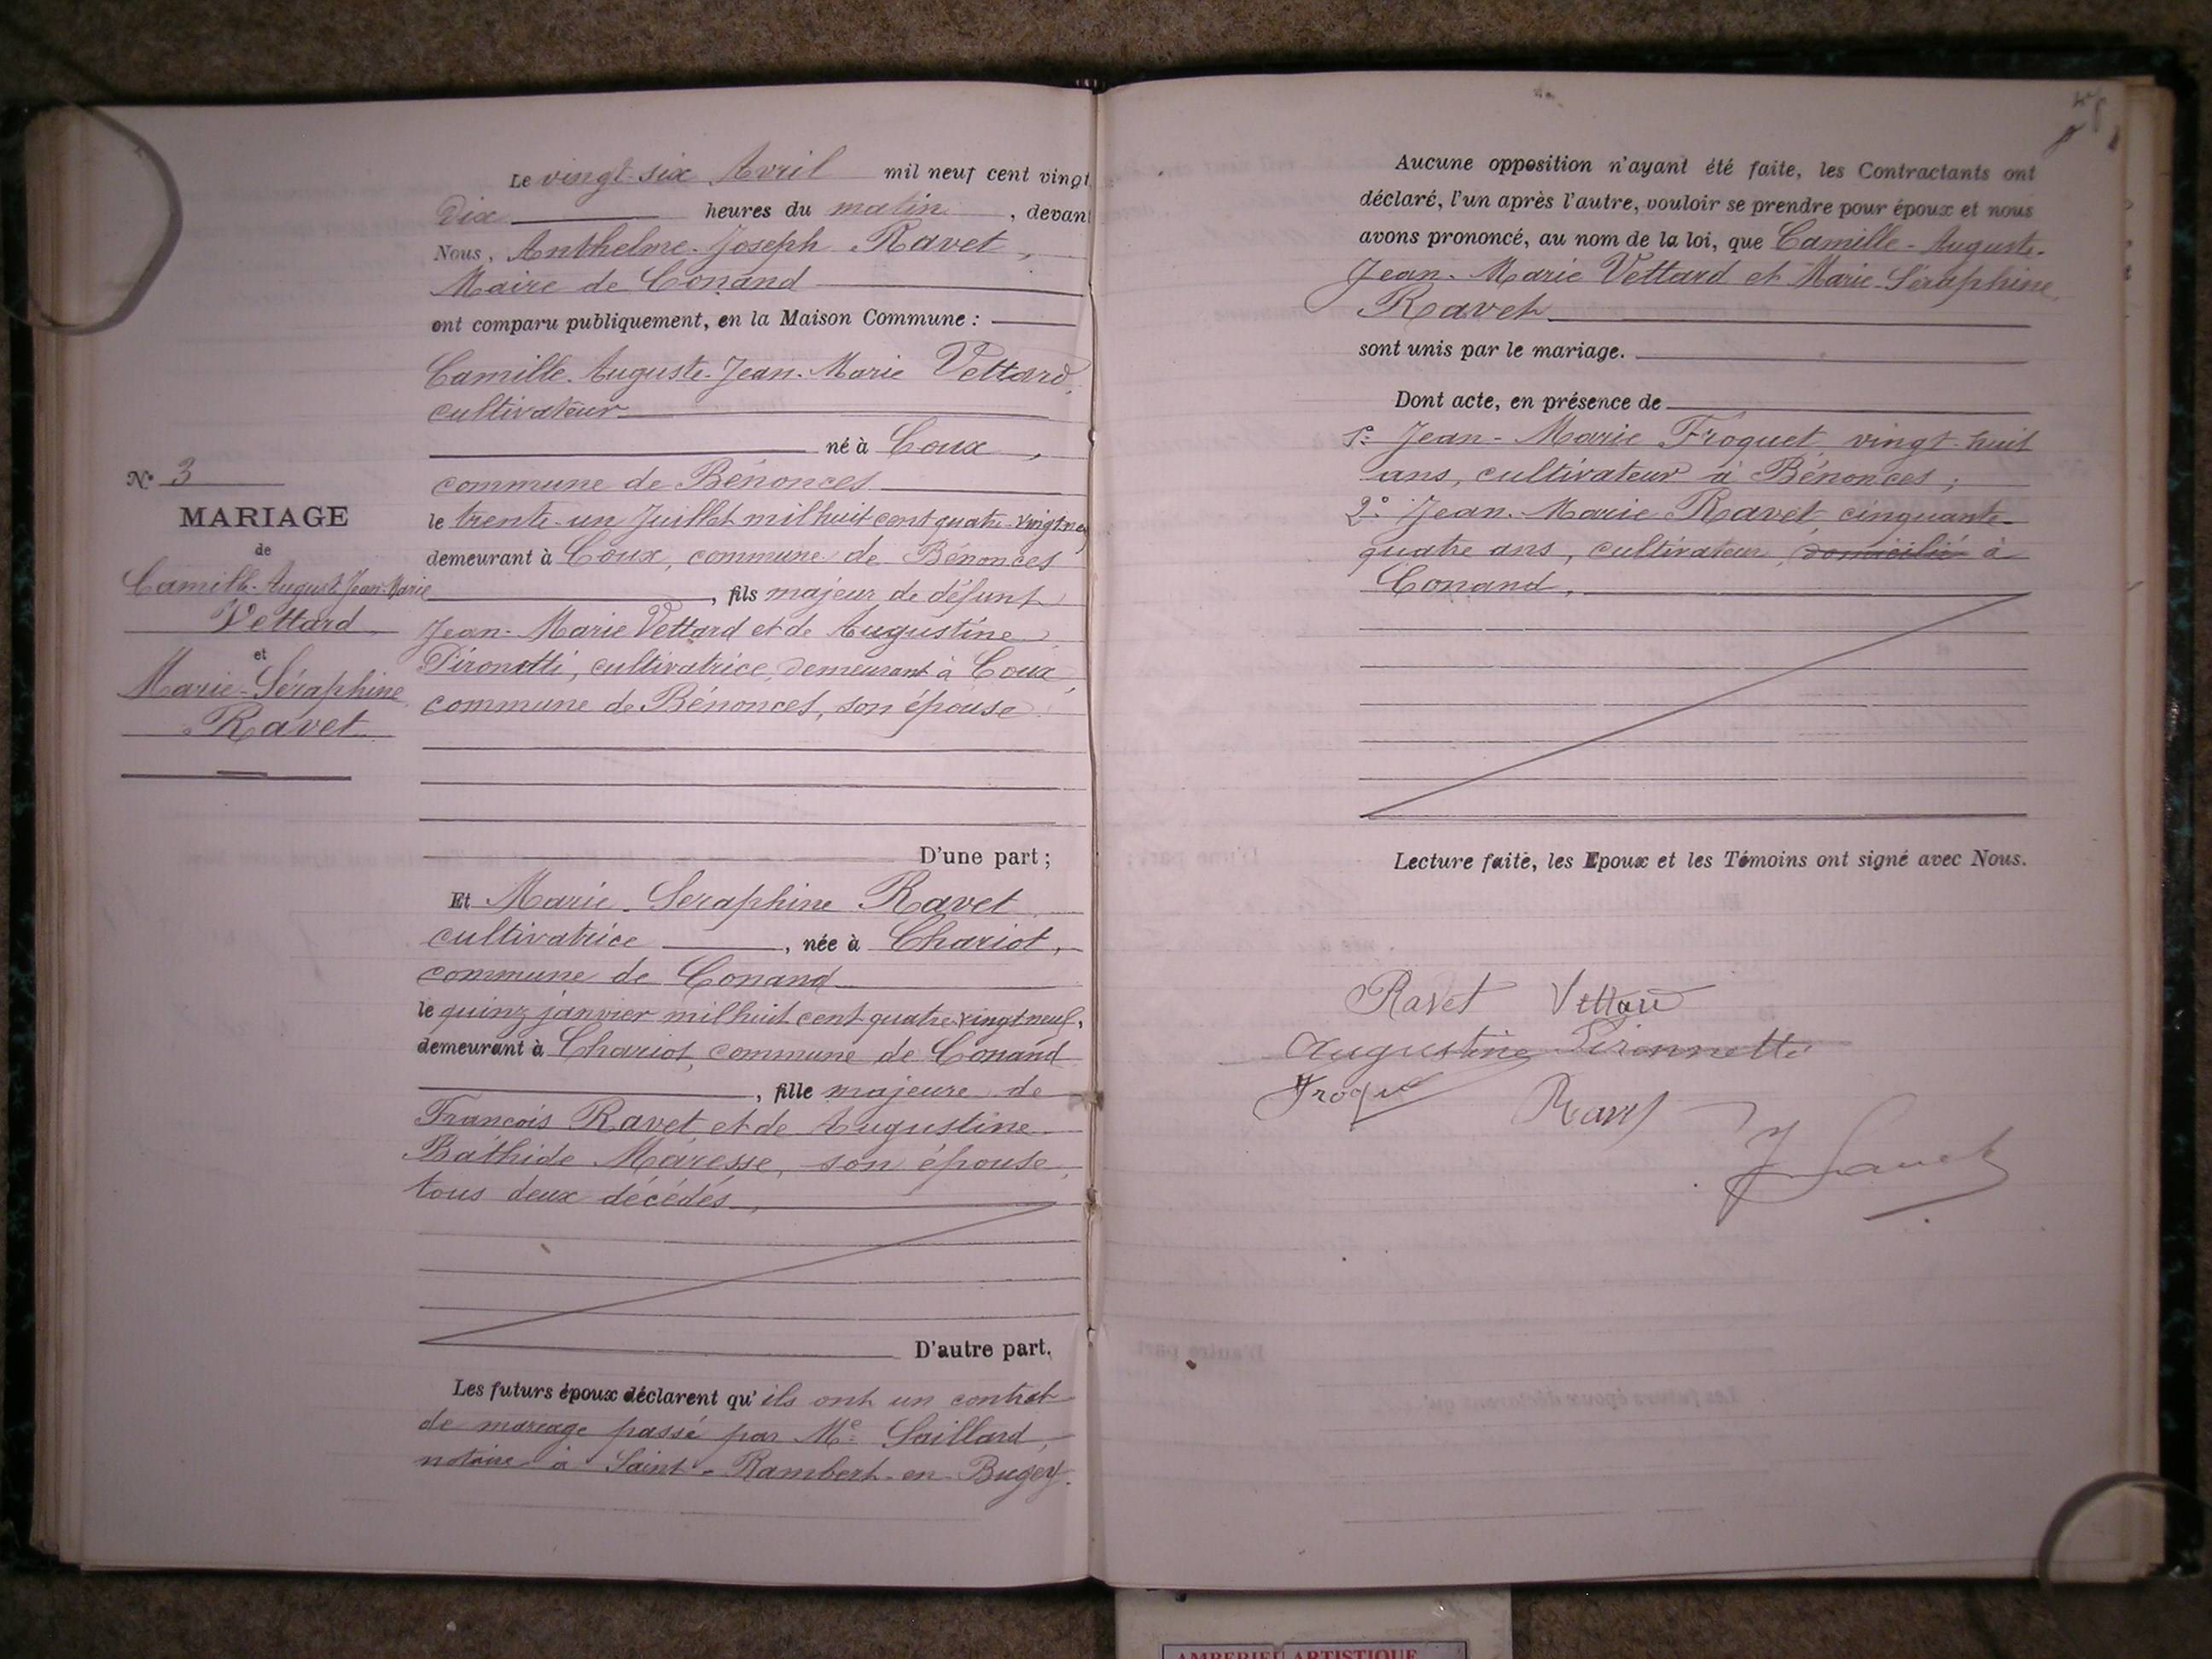 Le vingt-six Avril mil neuf cent vingt
Dix heures du matin, devant
Nous, Anthelme-Joseph Ravet,
Maire de Conand
ont comparu publiquement, en la Maison Commune :
Camille-Auguste-Jean-Marie Vettard,
cultivateur
né à Coux,
commune de Bénonces
le trente-un Juillet mil huit cent quatre-vingt
demeurant à Coux, commune de Bénonces
, fils majeur de défunt
Jean-Marie Vettard et de Augustine
Pironetti, cultivatrice, demeurant à Coux,
commune de Bénonces, son épouse
D'une part ;
N° 3
MARIAGE
de
Camille-Auguste Jean-Marie
Vettard
et
Marie-Séraphine
Ravet
Et Marie-Seraphine Ravet
cultivatrice, née à Chariot,
commune de Conand
le quinz janvier mil huit cent quatre vingt neuf,
demeurant à Chariot, commune de Conand
, fille majeure de
François Ravet et de Augustine
Bathide Maresse, son épouse,
tous deux décédés,
D'autre part.
Les futurs époux déclarent qu'ils ont un contrat
de mariage passé par Me Saillard,
notaire à Saint-Rambert-en-Bugey.
Aucune opposition n'ayant été faite, les Contractants ont
déclaré, l'un après l'autre, vouloir se prendre pour époux et nous
avons prononcé, au nom de la loi, que Camille-Auguste-
Jean-Marie Vettard et Marie-Séraphine
Ravet
sont unis par le mariage.
Dont acte, en présence de
1° Jean-Marie Froquet, vingt-huit
ans, cultivateur à Bénonces ;
2° Jean-Marie Ravet, cinquante-
quatre ans, cultivateur, domicilié à
Conand,
Lecture faite, les Epoux et les Témoins ont signé avec Nous.
Ravet Vettard
Augustine Pironnetti
Froque
Ravet
J Ravet
AMBERIEU ARTISTIQUE